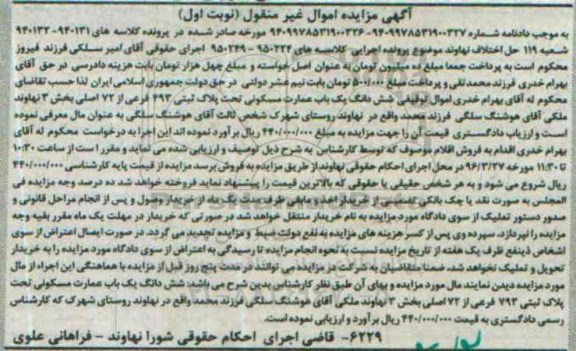 آگهی مزایده اموال غیر منقول (نوبت اول)
به موجب دادنامه شماره ۹۴۰۹۹۷۸۵۳۱۹۰۰۳۲۷-۹۴۰۹۹۷۸۵۳۱۹۰۰۳۲۶ مورخه صادر شده در پرونده کلاسه های ۹۴۰۱۳۱-۹۴۰۱۳۲
شعبه ۱۱۹ حل اختلاف نهاوند موضوع پرونده اجرایی کلاسه های ۹۵۰۲۲۴-۹۵۰۲۴۹ اجرای حقوقی آقای امیر سلگی فرزند فیروز
محکوم است به پرداخت جمعا مبلغ ده میلیون تومان به عنوان اصل خواسته و مبلغ چهل هزار تومان بابت هزینه دادرسی در حق آقای
بهرام خدری فرزند محمدتقی و پرداخت مبلغ ۵۰۰/۰۰۰ تومان بابت نیم عشر دولتی در حق دولت جمهوری اسلامی ایران لذا حسب تقاضای
محکوم له آقای بهرام خدری اموال توقیفی شش دانگ یک باب عمارت مسکونی تحت پلاک ثبتی ۷۹۳ فرعی از ۷۲ اصلی بخش ۳ نهاوند
ملکی آقای هوشنگ سلگی فرزند محمد واقع در نهاوند روستای شهرک شخص ثالث آقای هوشنگ سلگی به عنوان مال معرفی نموده
است و ارزیاب دادگستری قیمت آن را جهت مزایده به مبلغ ۴۴۰/۰۰۰/۰۰۰ ریال برآورد نموده اند این اجرا به درخواست محکوم له آقای
بهرام خدری اقدام به فروش اقلام موصوف که توسط کارشناس به شرح ذیل توصیف و ارزیابی شده می نماید و مقرر است از ساعت ۱۰:۳۰
تا ۱۱:۳۰ مورخه ۹۶/۳/۲۷ در محل اجرای احکام حقوقی نهاوند از طریق مزایده به فروش برسد مزایده از قیمت پایه کارشناسی ۴۴۰/۰۰۰/۰۰۰
ریال شروع می شود و به هر شخص حقیقی یا حقوقی که بالاترین قیمت را پیشنهاد نماید فروخته خواهد شد ده درصد وجه مزایده فی
المجلس به صورت نقد یا چک بانکی تضمینی از خریدار اخذ و مابقی ظرف مدت یک ماه از خریدار وصول و پس از انجام مراحل قانونی و
صدور دستور تملیک از سوی دادگاه مورد مزایده به نام خریدار منتقل خواهد شد در صورتی که خریدار در مهلت یک ماه مقرر بقیه وجه
مزایده را نپردازد، سپرده وی پس از کسر هزینه های مزایده به نفع دولت ضبط و مزایده تجدید می گردد. در صورت ایصال اعتراض از سوی
اشخاص ذینفع ظرف یک هفته از تاریخ مزایده نسبت به نحوه انجام مزایده تا رسیدگی به اعتراض از سوی دادگاه مورد مزایده را به خریدار
تحویل و تملیک نخواهد شد، ضمنا متقاضیان به شرکت در مزایده می توانند در مدت پنج روز قبل از مزایده با هماهنگی این اجراء از مال
مورد مزایده دیدن نمایند مال مورد مزایده و بهای آن طبق نظر کارشناس بدین شرح می باشد: شش دانگ یک باب عمارت مسکونی تحت
پلاک ثبتی ۷۹۳ فرعی از ۷۲ اصلی بخش ۳ نهاوند ملکی آقای هوشنگ سلگی فرزند محمد واقع در نهاوند روستای شهرک که کارشناس
رسمی دادگستری به قیمت ۴۴۰/۰۰۰/۰۰۰ ریال برآورد و ارزیابی نموده است.
۶۲۲۹- قاضی اجرای احکام حقوقی شورا نهاوند - فراهانی علوی